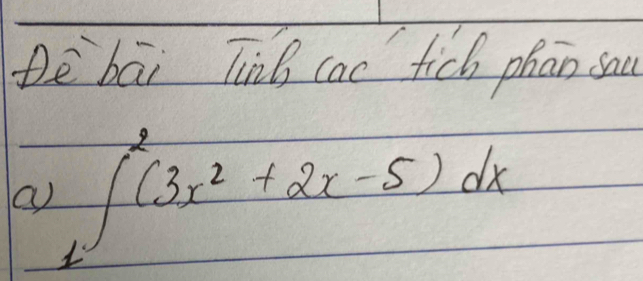 Đề bài Tính các tích phân sau
a) ∫₁² (3x² + 2x - 5) dx